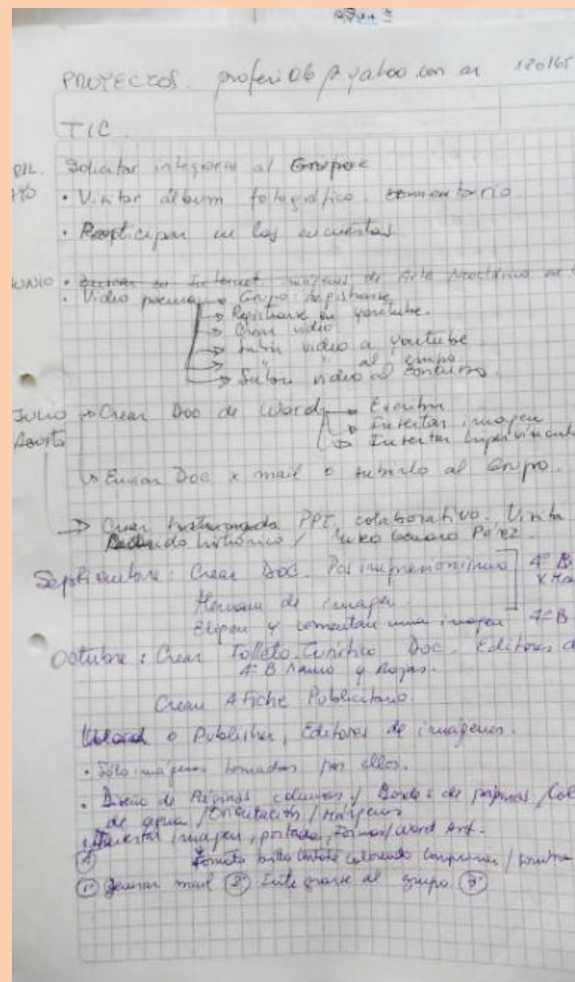 PROYECTOS. proferi06@yahoo.com.ar 180165
TIC
Solicitar integrarse al Grupo
• Visitar álbum fotográfico. comentario
• Participar en las encuestas.
JUNIO • Buscar en Internet imágenes de Arte Neoclásico
• Video poema → Grupo: Registrarse
→ Registrarse en youtube.
→ Crear video
→ Subir video a youtube
→ " " al grupo
→ Subir video al concurso.
JULIO → Crear Doc de Word → Escribir
Agosto → Insertar imagen
→ Insertar hipervínculo
↳ Enviar Doc x mail o subirlo al Grupo.
→ Crear PPT, colaborativo. Visita
histórico /
Septiembre: Crear Doc. 4º B
de imagen
Elipen y comentan una imagen 4º B
Octubre: Crear Folleto Turístico Doc. Editores de
4º B y Rojas.
Crear Afiche Publicitario.
Word o Publisher, Editores de imágenes.
• Sólo imágenes tomadas por ellos.
• Diseño de Páginas columnas / Bordes de páginas /
de agua / Orientación / Márgenes
• Insertar / imagen, portada, Formas / Word Art.
Formato
① Generar mail ② Integrarse al grupo. ③